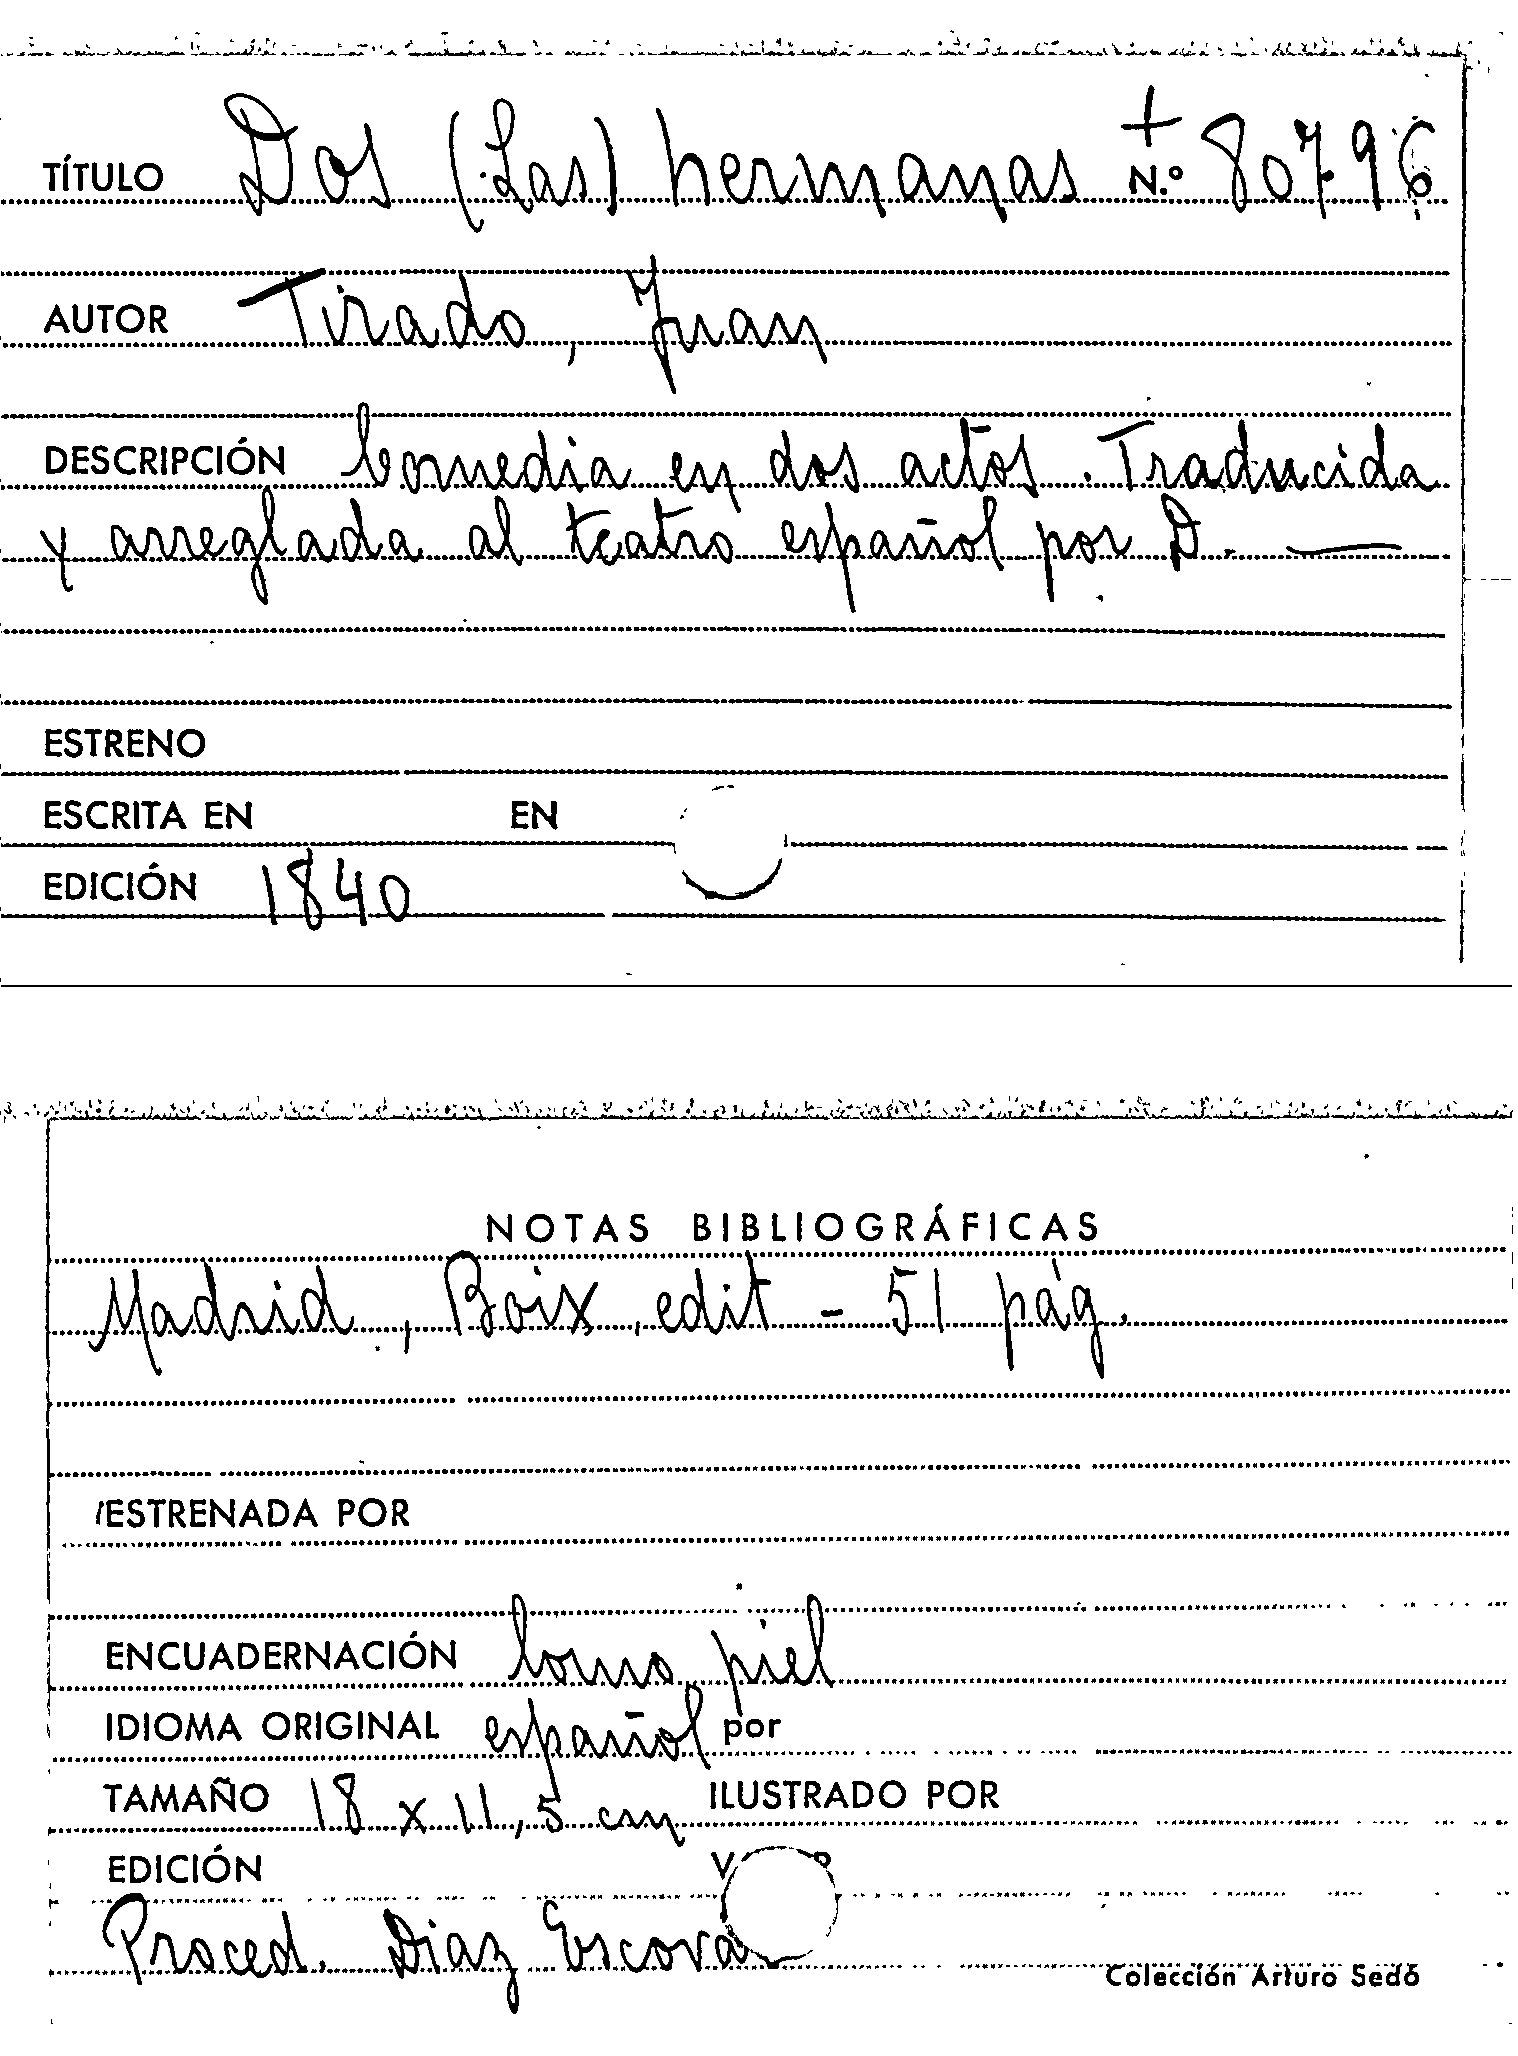 TÍTULO Dos (Las) hermanas + N.º 80796
AUTOR Tirado, Juan
DESCRIPCIÓN Comedia en dos actos. Traducida
y arreglada al teatro español por D. —
ESTRENO
ESCRITA EN EN
EDICIÓN 1840
NOTAS BIBLIOGRÁFICAS
Madrid, Boix, edit - 51 pág.
ESTRENADA POR
ENCUADERNACIÓN lomo piel
IDIOMA ORIGINAL español por
TAMAÑO 18 x 11,5 cm ILUSTRADO POR
EDICIÓN
Proced. Diaz Escova
Colección Arturo Sedó